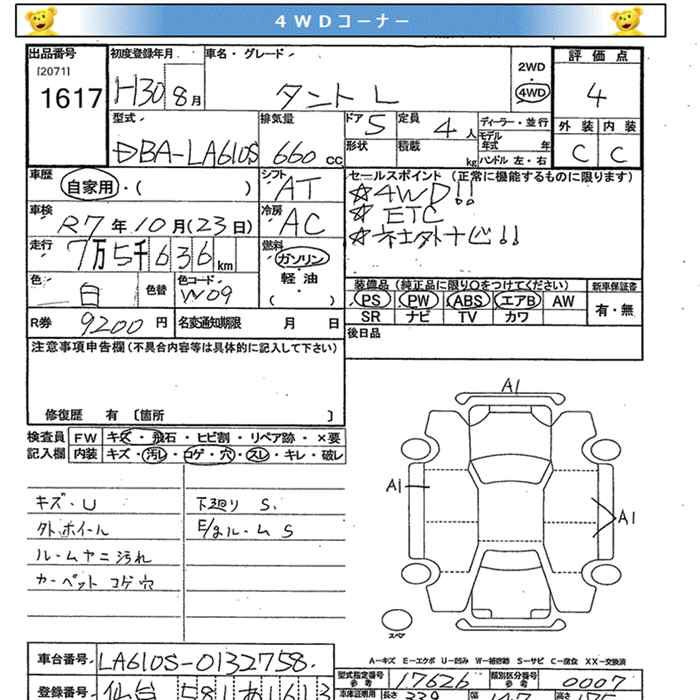 4WDコーナー
出品番号 初度登録年月 車名・グレード 評価点
[2071]
1617 H30 8月 タント L 2WD・4WD 4
型式 排気量 ドア 5 定員 4人 ディーラー・並行 外装 内装
DBA-LA610S 660cc 形状 積載 kg モデル年式 年 C C
ハンドル 左・右
車歴 シフト セールスポイント (正常に機能するものに限ります)
自家用・( ) AT ☆4WD!!
車検 冷房 ☆ETC
R7年10月(23日) AC ☆社外ナビ!!
走行 7万5千636km 燃料 ガソリン 軽油 ( ・ )
装備品 (純正品に限り○をつけてください) 新車保証書
色 白 色替 色コード W09 PS PW ABS エアB AW 有・無
SR ナビ TV カワ
R券 9200円 名変通知期限 月 日 後日品
注意事項申告欄(不具合内容等は具体的に記入して下さい)
修復歴 有 〔箇所 〕
検査員 FW キズ・飛石・ヒビ割・リペア跡・×要
記入欄 内装 キズ・汚レ・コゲ・穴・スレ・キレ・破レ
A1
A1
A1
キズ・U 下廻り S.
外ホイール E/gルーム S
ルームヤニ汚れ
カーペットコゲ穴
スペア
A-キズ E-エクボ U-凹み W-補修跡 S-サビ C-腐食 XX-交換済
車台番号 LA610S-0132758. 型式指定番号 参考 17626 類別区分番号 参考 0007
登録番号 仙台 581 あ1613 車庫証明用 長さ 339